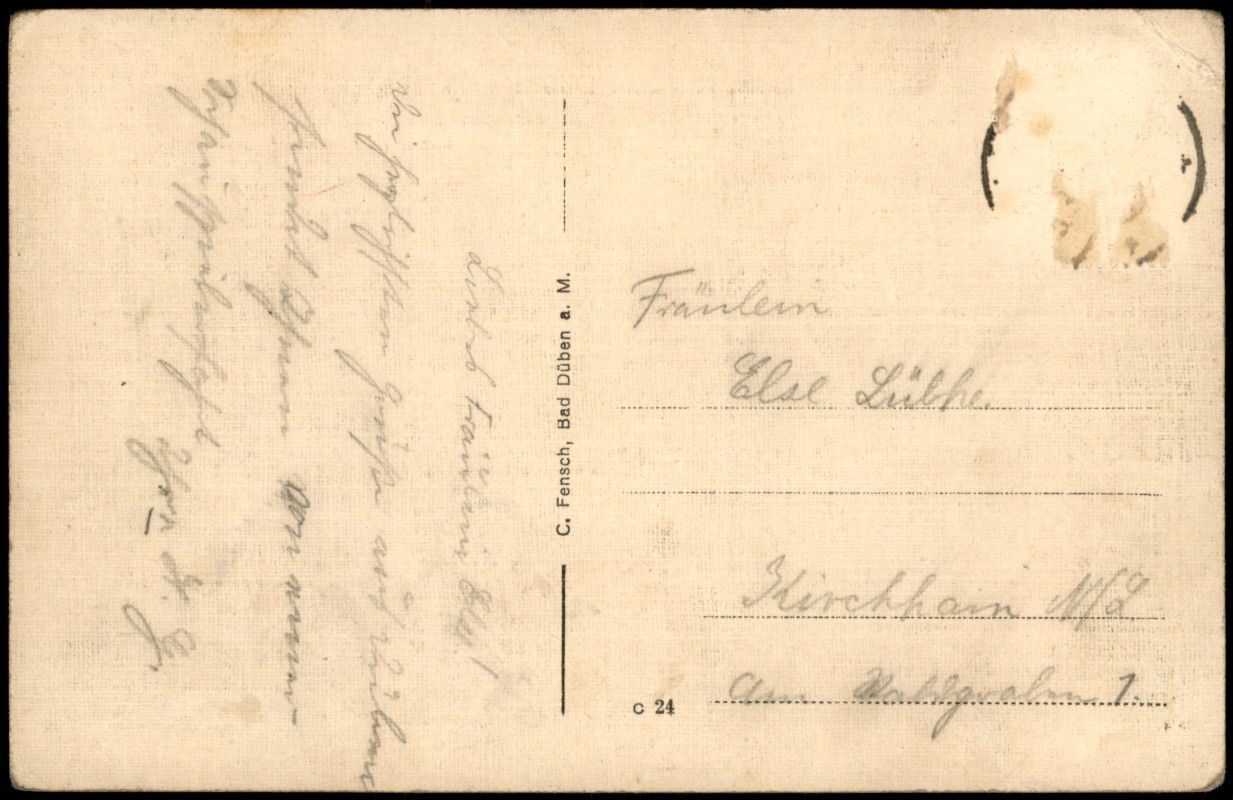 Liebes Fräulein Else!
Die herzlichsten Grüße aus Düben
sendet Ihnen von einer
Ihr H. G.
C. Fensch, Bad Düben a. M.
Fräulein
Else Lübke.
Kirchhain N/L.
Am Waldgraben 1.
C 24